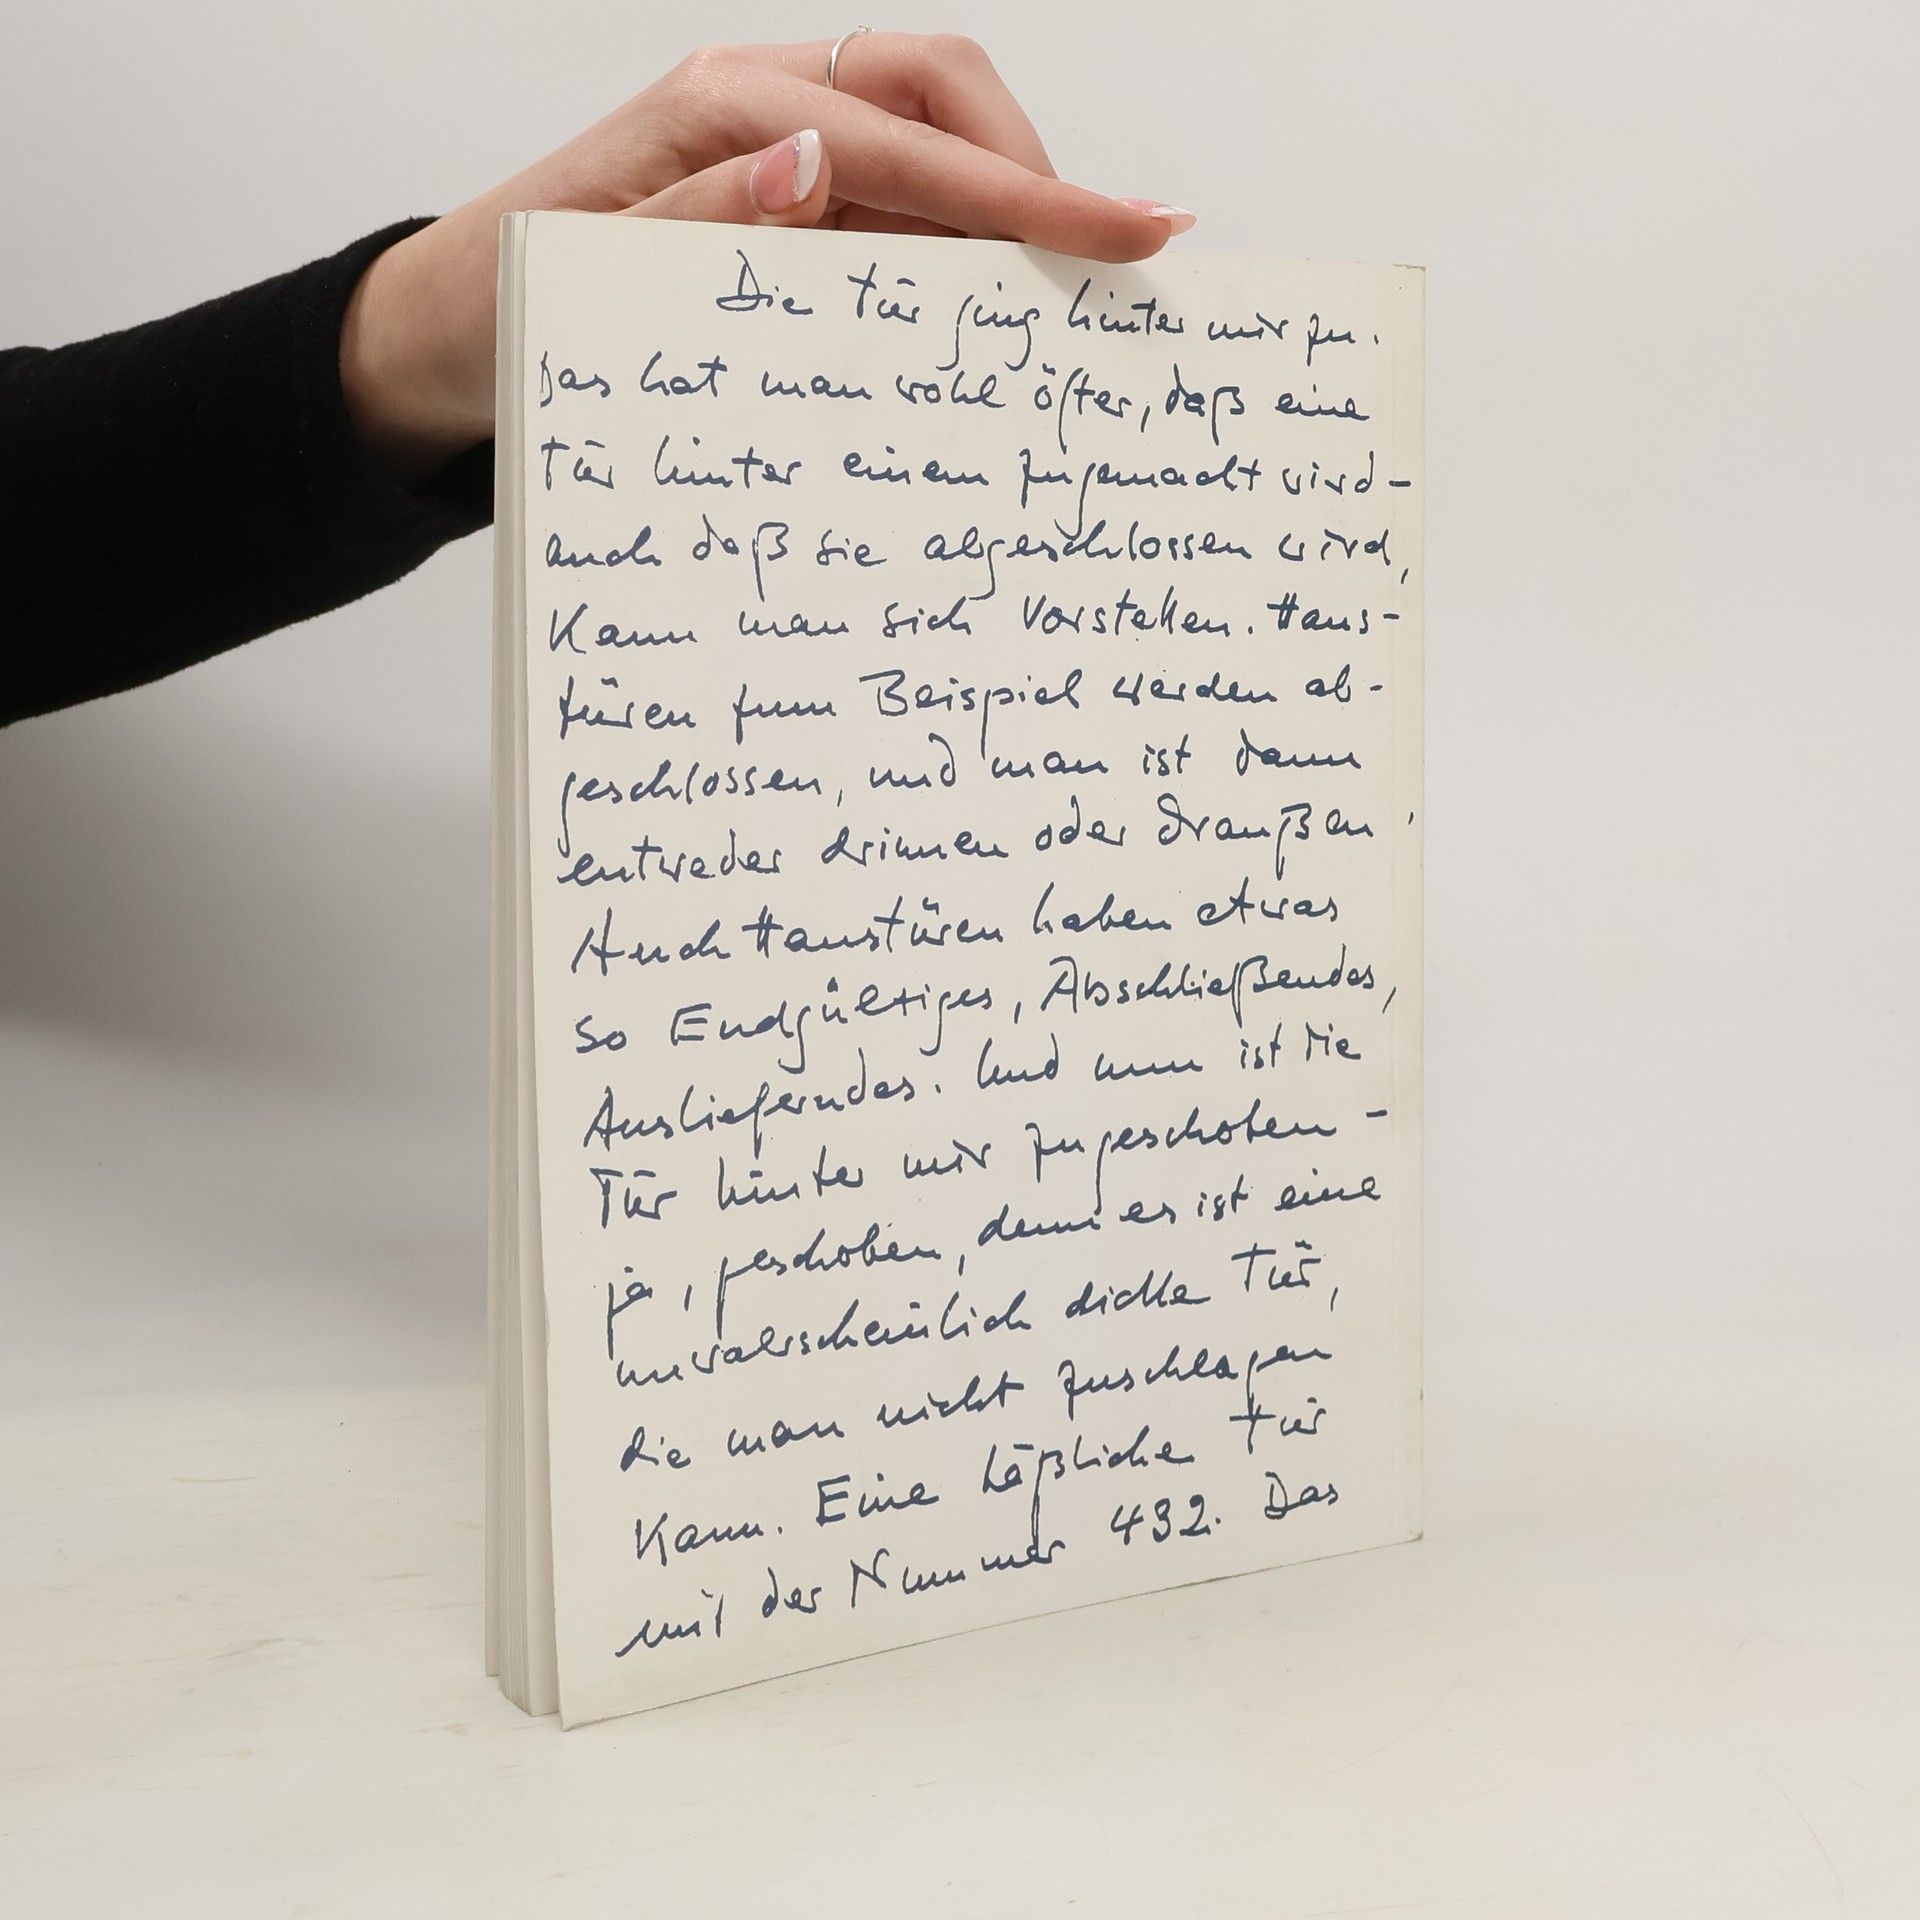 Die Tür ging hinter mir zu.
Das hat man wohl öfter, daß eine
Tür hinter einem zugemacht wird-
auch daß sie abgeschlossen wird,
kann man sich vorstellen. Haus-
türen zum Beispiel werden ab-
geschlossen, und man ist dann
entweder drinnen oder draußen.
Auch Haustüren haben etwas
so Endgültiges, Abschließendes,
Auslieferndes. Und nun ist die
Tür hinter mir zugeschoben -
ja, geschoben, denn es ist eine
unwahrscheinlich dicke Tür,
die man nicht zuschlagen
kann. Eine häßliche Tür
mit der Nummer 432. Das